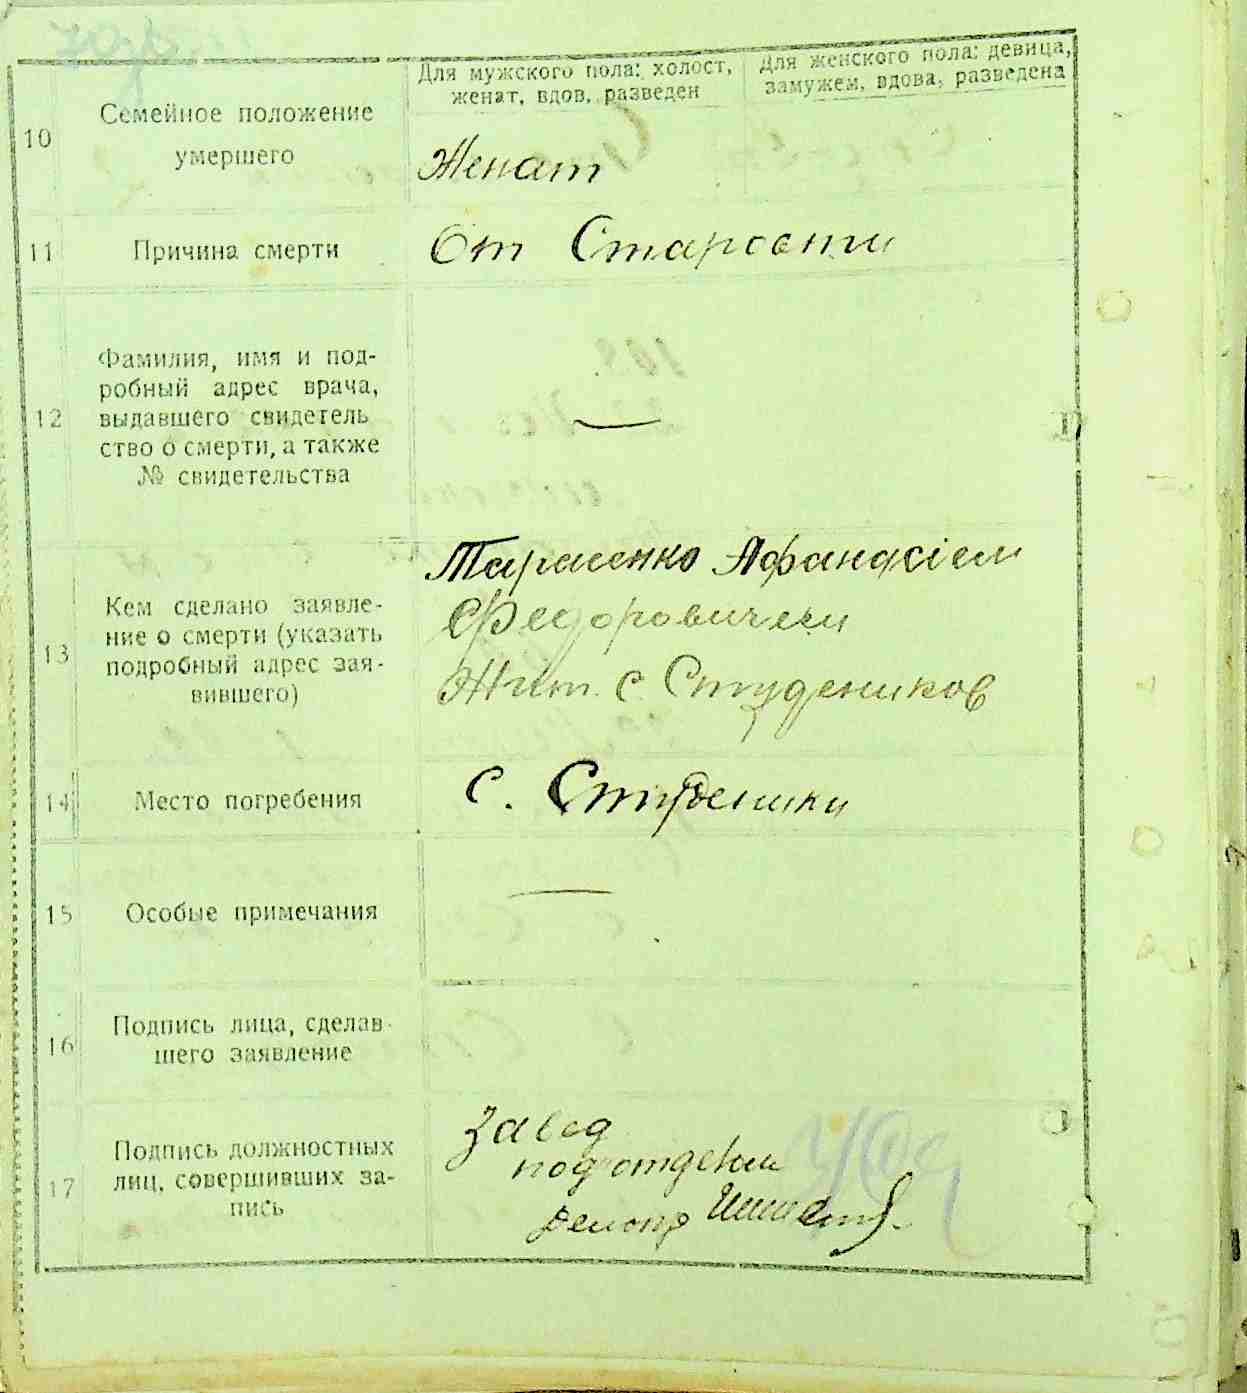 10
Семейное положение
умершего
Для мужского пола: холост,
женат, вдов, разведен
Для женского пола: девица,
замужем, вдова, разведена
Женат
11
Причина смерти
От Старости
12
Фамилия, имя и под-
робный адрес врача,
выдавшего свидетель
ство о смерти, а также
№ свидетельства
—
13
Кем сделано заявле-
ние о смерти (указать
подробный адрес зая-
вившего)
Тарасенко Афанасіем
Федоровичем
Жит. с. Студеников
14
Место погребения
с. Студеники
15
Особые примечания
—
16
Подпись лица, сделав-
шего заявление
17
Подпись должностных
лиц, совершивших за-
пись
Завед
подотделом